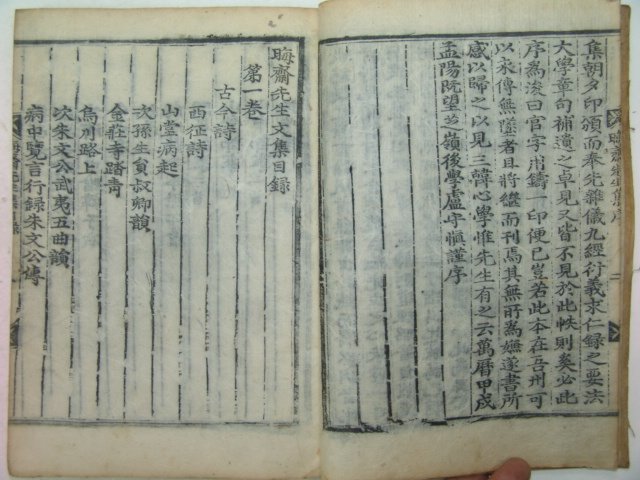 集朝夕印頒而奉先雜儀九經衍義求仁錄之要法
大學章句補遺之卓見又皆不見於此帙則矣必此
序爲後曰官字冶鑄一印便已豈若此本在吾州可
以永傳無墜者且將繼而刊焉其無所爲嫌遂書所
感以歸之以見三韓心學惟先生有之云萬曆甲戌
孟陽旣望芝嶺後學盧守愼謹序
晦齋先生文集目錄
第一卷
古今詩
西征詩
山堂病起
次孫生貟叔卿韻
金莊寺踏靑
烏川路上
次朱文公武夷五曲韻
病中覽言行録朱文公傳